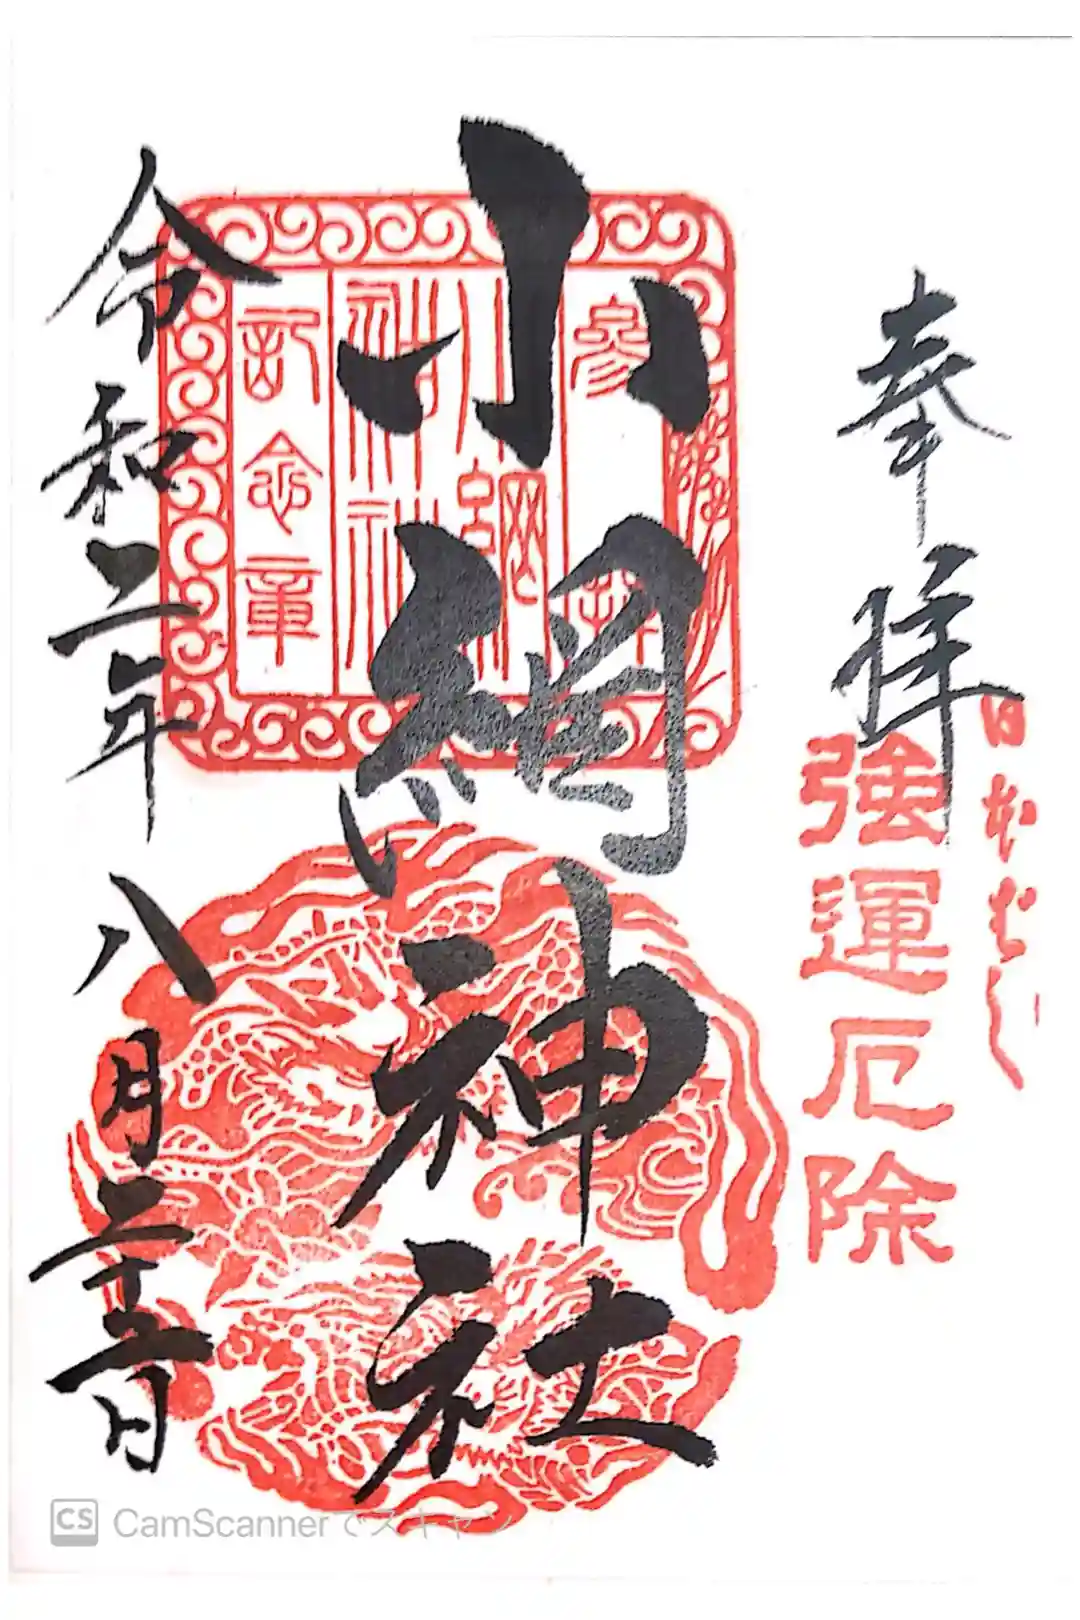 日本ばし
奉拝
強運厄除
小網神社
參拝
小網
神社
記念章
令和二年八月二十二日
CS CamScannerでスキャン